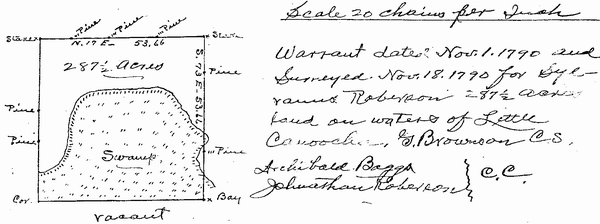 Pine Pine Pine
Stake N. 17 E. 53.66 Stake
287½ Acres
S. 73 E. 53.66
Pine
Pine
Pine
Pine
Swamp
Cor. Bay
vacant
Scale 20 chains per Inch
Warrant dated Nov. 1. 1790 and
Surveyed Nov. 18. 1790 for
Roberson 287½ Acres
land on waters of Little
Canooche. Browson C. S.
Archibald Baggs
Johnathan Roberson } C. C.